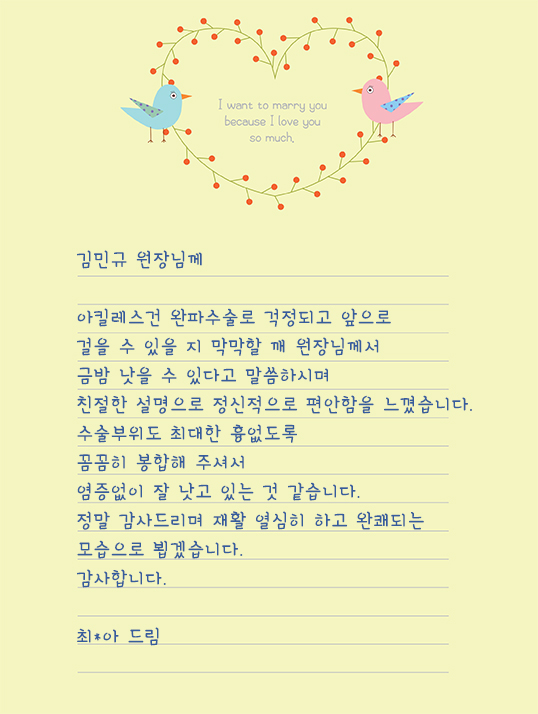 I want to marry you
because I love you
so much,
김민규 원장님께
아킬레스건 완파수술로 걱정되고 앞으로
걸을 수 있을 지 막막할 깨 원장님께서
금밤 낫을 수 있다고 말씀하시며
친절한 설명으로 정신적으로 편안함을 느꼈습니다.
수술부위도 최대한 흉없도록
꼼꼼히 봉합해 주셔서
염증없이 잘 낫고 있는 것 같습니다.
정말 감사드리며 재활 열심히 하고 완쾌되는
모습으로 뵙겠습니다.
감사합니다.
최*아 드림